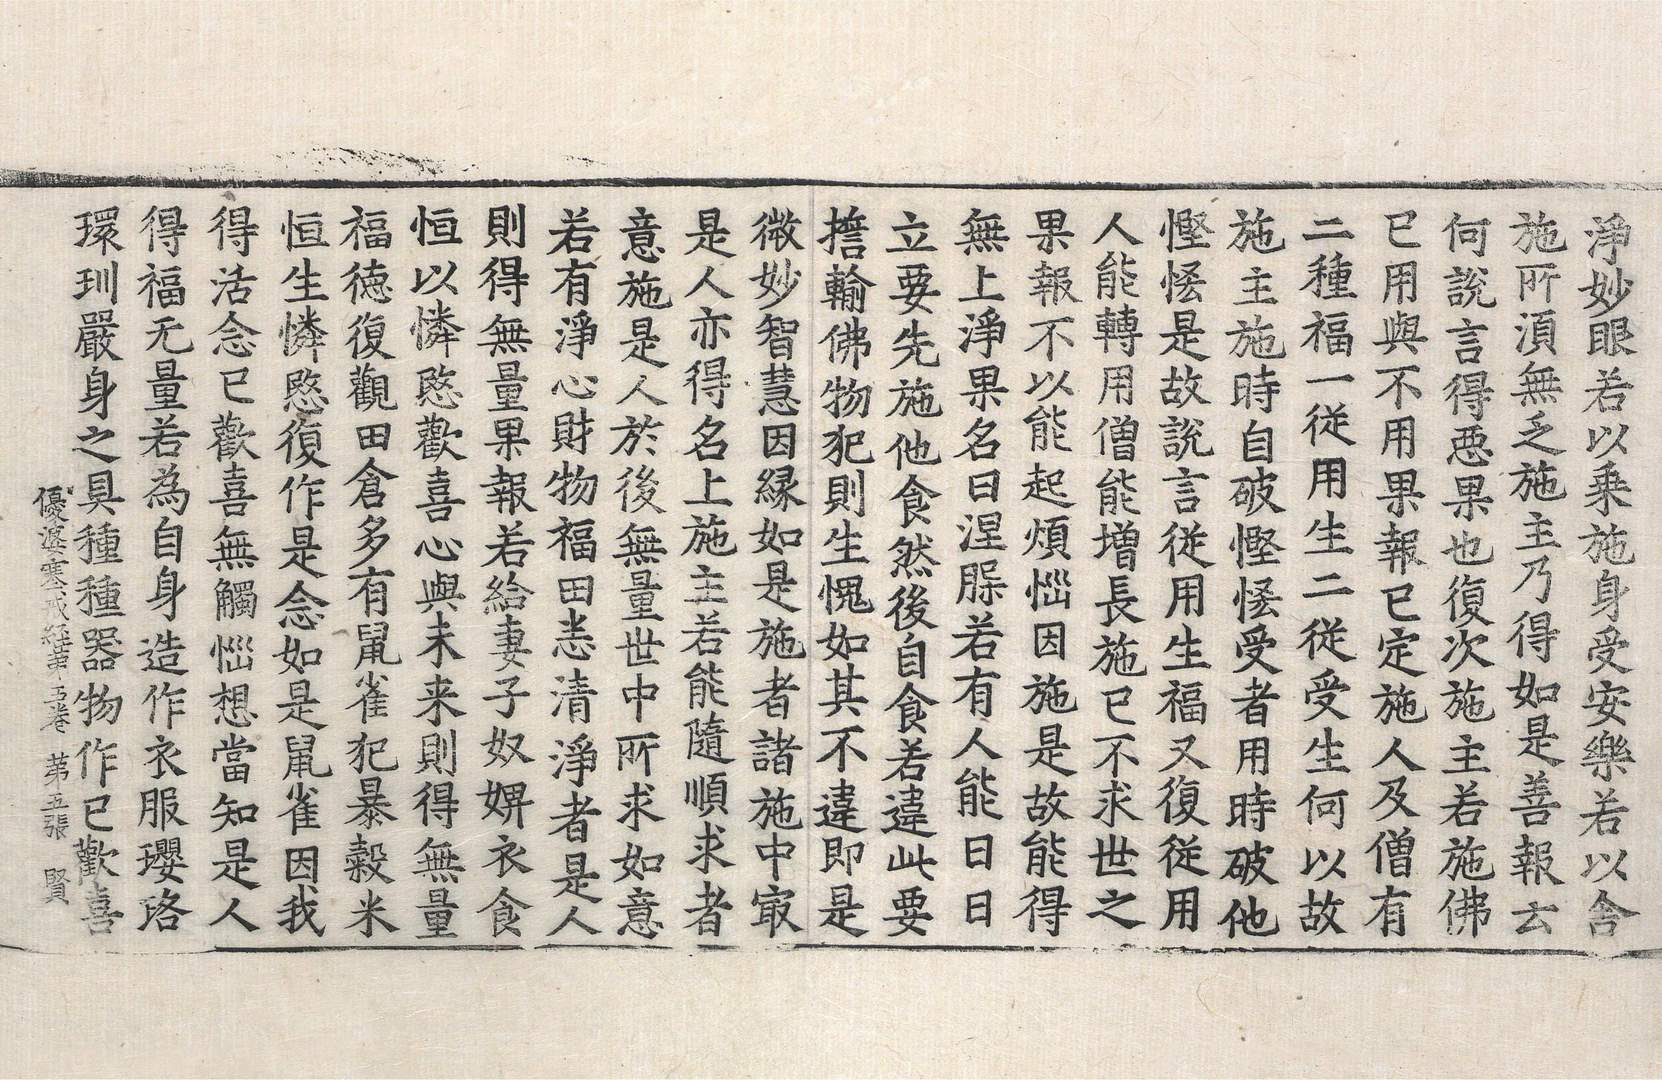 淨妙眼若以乘施身受安樂若以舍
施所湏無乏施主乃得如是善報云
何說言得惡果也復次施主若施佛
已用與不用果報已定施人及僧有
二種福一從用生二從受生何以故
施主施時自破慳悋受者用時破他
慳悋是故說言從用生福又復從用
人能轉用僧能增長施已不求世之
果報不以能起煩惱因施是故能得
無上淨果名曰涅槃若有人能日日
立要先施他食然後自食若違此要
擔輸佛物犯則生愧如其不違即是
微妙智慧因緣如是施者諸施中㝡
是人亦得名上施主若能隨順求者
意施是人於後無量世中所求如意
若有淨心財物福田悉清淨者是人
則得無量果報若給妻子奴婢衣食
恒以憐愍歡喜心與未来則得無量
福德復觀田倉多有鼠雀犯暴穀米
恒生憐愍復作是念如是鼠雀因我
得活念已歡喜無觸惱想當知是人
得福无量若為自身造作衣服瓔珞
環玔嚴身之具種種器物作已歡喜
優婆塞戒經第五卷 第五張 賢